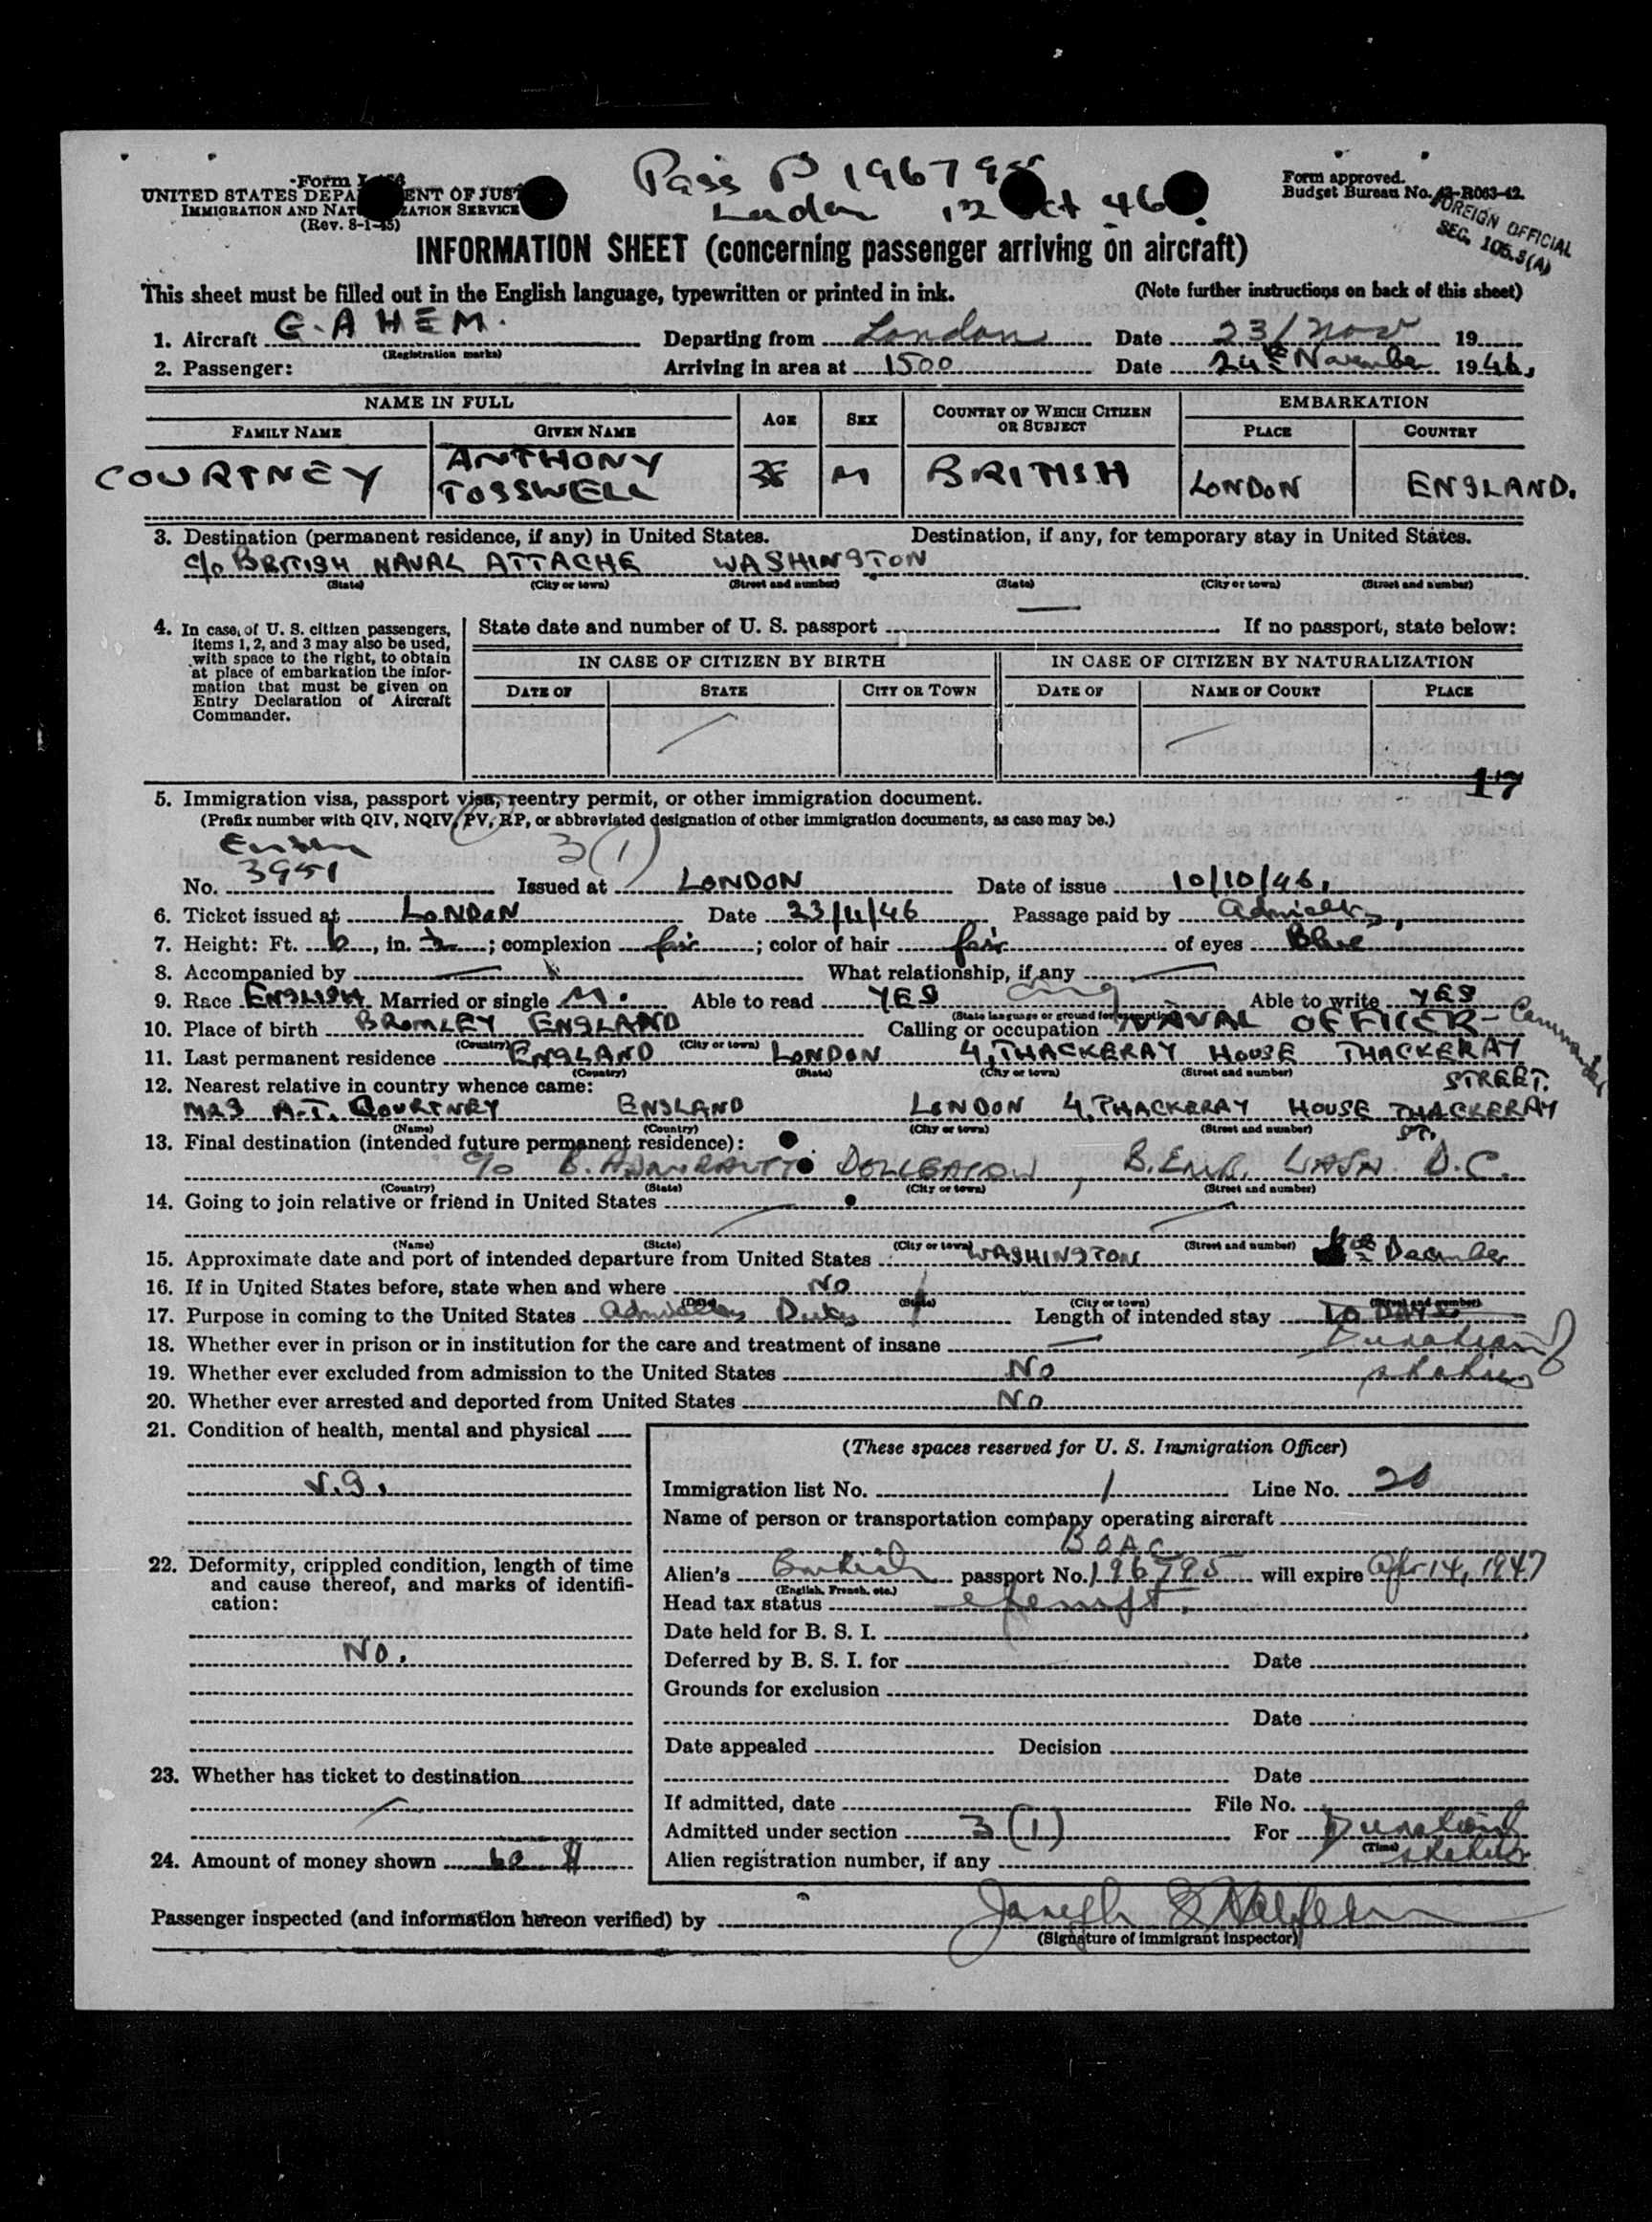 Pass P 196795
London 12 Oct 46
Form
UNITED STATES DEPA ENT OF JUST
IMMIGRATION AND NAT ZATION SERVICE
(Rev. 8-1-45)
Form approved.
Budget Bureau No. 43-R063-42.
FOREIGN OFFICIAL
SEC. 105.3(A)
INFORMATION SHEET (concerning passenger arriving on aircraft)
This sheet must be filled out in the English language, typewritten or printed in ink. (Note further instructions on back of this sheet)
1. Aircraft G. A H E M. Departing from London Date 23/Nov 19
(Registration marks)
2. Passenger: Arriving in area at 1500 Date 24th November 1946.
NAME IN FULL AGE SEX COUNTRY OF WHICH CITIZEN OR SUBJECT EMBARKATION
FAMILY NAME GIVEN NAME PLACE COUNTRY
COURTNEY ANTHONY TOSSWELL 38 M BRITISH LONDON ENGLAND.
3. Destination (permanent residence, if any) in United States. Destination, if any, for temporary stay in United States.
c/o BRITISH NAVAL ATTACHE WASHINGTON
(State) (City or town) (Street and number) (State) (City or town) (Street and number)
4. In case of U. S. citizen passengers, items 1, 2, and 3 may also be used, with space to the right, to obtain at place of embarkation the information that must be given on Entry Declaration of Aircraft Commander.
State date and number of U. S. passport If no passport, state below:
IN CASE OF CITIZEN BY BIRTH IN CASE OF CITIZEN BY NATURALIZATION
DATE OF STATE CITY OR TOWN DATE OF NAME OF COURT PLACE
17
5. Immigration visa, passport visa, reentry permit, or other immigration document.
(Prefix number with QIV, NQIV, PV, RP, or abbreviated designation of other immigration documents, as case may be.)
3(1)
No. 3951 Issued at LONDON Date of issue 10/10/46.
6. Ticket issued at LONDON Date 23/11/46 Passage paid by Admiralty,
7. Height: Ft. 6, in. ; complexion fair; color of hair fair of eyes Blue
8. Accompanied by — What relationship, if any —
9. Race ENGLISH Married or single M. Able to read YES Eng Able to write YES
(State language or ground for exemption)
10. Place of birth BROMLEY ENGLAND Calling or occupation NAVAL OFFICER - Commander
(Country) (City or town)
11. Last permanent residence ENGLAND LONDON 4, THACKERAY HOUSE THACKERAY STREET.
(Country) (State) (City or town) (Street and number)
12. Nearest relative in country whence came:
MRS A.T. COURTNEY ENGLAND LONDON 4, THACKERAY HOUSE THACKERAY ST.
(Name) (Country) (City or town) (Street and number)
13. Final destination (intended future permanent residence):
c/o B. ADMIRALTY DELEGATION, B. EMB. WASH. D.C.
(Country) (State) (City or town) (Street and number)
14. Going to join relative or friend in United States
(Name) (State) (City or town) (Street and number)
15. Approximate date and port of intended departure from United States WASHINGTON December
16. If in United States before, state when and where NO
(Date) (State) (City or town) (Street and number)
17. Purpose in coming to the United States Admiralty Duties Length of intended stay 10 DAYS
Duration of status
18. Whether ever in prison or in institution for the care and treatment of insane —
19. Whether ever excluded from admission to the United States No
20. Whether ever arrested and deported from United States No
21. Condition of health, mental and physical
V.G.
22. Deformity, crippled condition, length of time and cause thereof, and marks of identification:
No.
23. Whether has ticket to destination
24. Amount of money shown 60 $
(These spaces reserved for U. S. Immigration Officer)
Immigration list No. 1 Line No. 20
Name of person or transportation company operating aircraft
BOAC
Alien's British passport No. 196795 will expire Apr 14, 1947
(English, French, etc.)
Head tax status exempt.
Date held for B. S. I.
Deferred by B. S. I. for Date
Grounds for exclusion
Date
Date appealed Decision
Date
If admitted, date File No.
Admitted under section 3(1) For Duration of status
(Time)
Alien registration number, if any
Passenger inspected (and information hereon verified) by Joseph
(Signature of immigrant inspector)